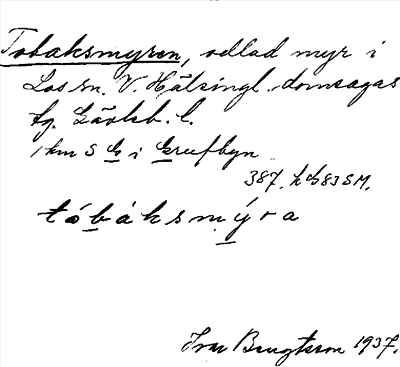 Tobaksmyren, odlad myr i
Los sn. V. Hälsingl. domsagas
tg. Gävleb. l.
1 km S G i Grufbyn
387. h G 83 SM.
tóbáksmýra
Ivar Bengtsson 1937.